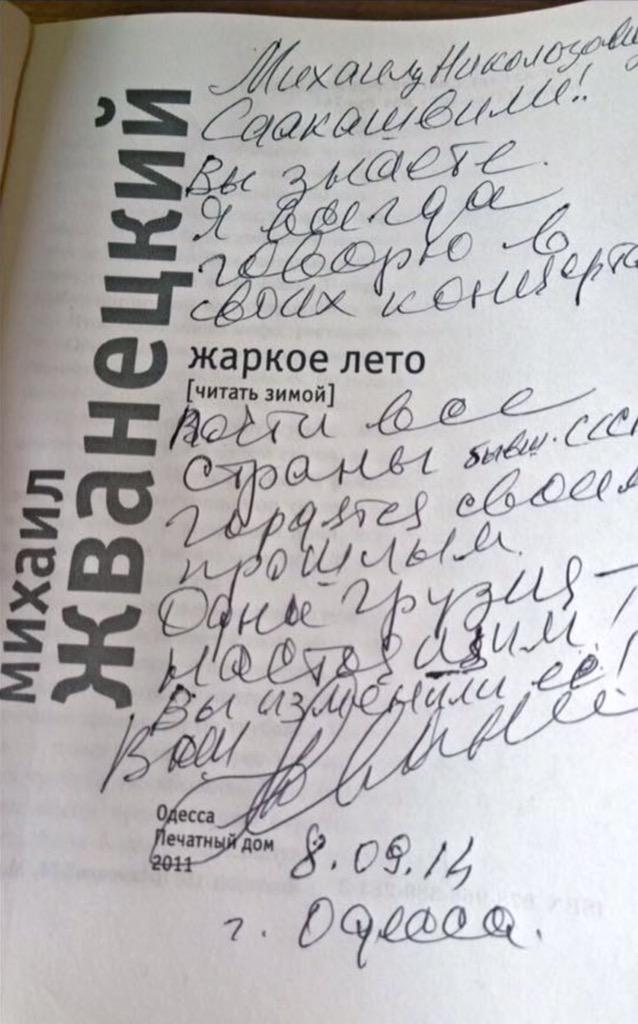 Михаилу Николозови
Саакашвили!
Вы знаете.
Я всегда
говорю в
своих концерта
михаил
Жванецкий
жаркое лето
[читать зимой]
почти все
страны бывш. ССС
гордятся своим
прошлым.
Одна Грузия —
настоящим!
Вы изменили её!
Ваш
Одесса
Печатный дом
2011
8.09.14
г. Одесса.